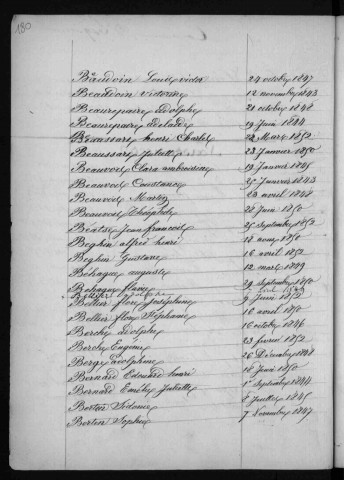 180
Baudoin Louis victor 24 octobre 1847
Beaudoin victorine 12 novembre 1843
Beaurepaire adolphe 21 octobre 1848
Beaurepaire adelaide 19 Juin 1844
Beaussart henri Charles 22 Mars 1852
Beaussart Juliette 28 Janvier 1850
Beauvois Clara ambroisine 19 Janvier 1845
Beauvois Constance 25 Janvier 1843
Beauvois Martin 29 avril 1848
Beauvois Théophile 26 Juin 1850
Béatrix Jean francois 25 septembre 1852
Beghin alfred henri 18 aout 1850
Beghin Gustave 16 avril 1852
Béhague auguste 12 mars 1849
Behague flavie 29 septembre 1850
Bellier flore Joséphine 9 Juin 1852
Bellier flore Stéphanie 16 avril 1850
Berche adolphe 16 octobre 1846
Berche Eugène 23 fevrier 1852
Berge adolphine 26 Décembre 1848
Bernard Edouard henri 16 Juin 1850
Bernard Emélie Juliette 1er septembre 1844
Bertin Sidonie 8 Juillet 1845
Bertin Sophie 7 Décembre 1847